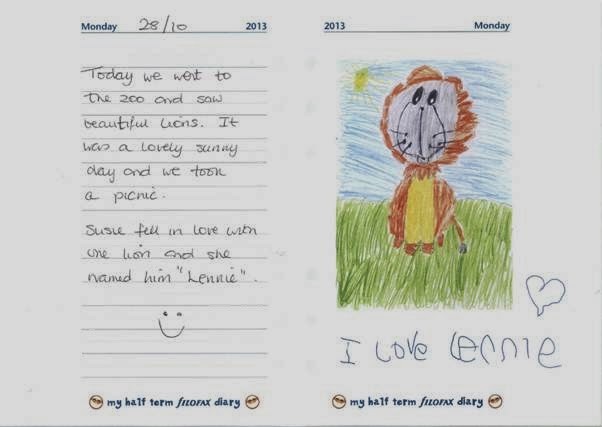 Monday 28/10 2013
Today we went to
the zoo and saw
beautiful lions. It
was a lovely sunny
day and we took
a picnic.
Susie fell in love with
one lion and she
named him "Lennie".
my half term FILOFAX diary
2013 Monday
I love Lennie
my half term FILOFAX diary